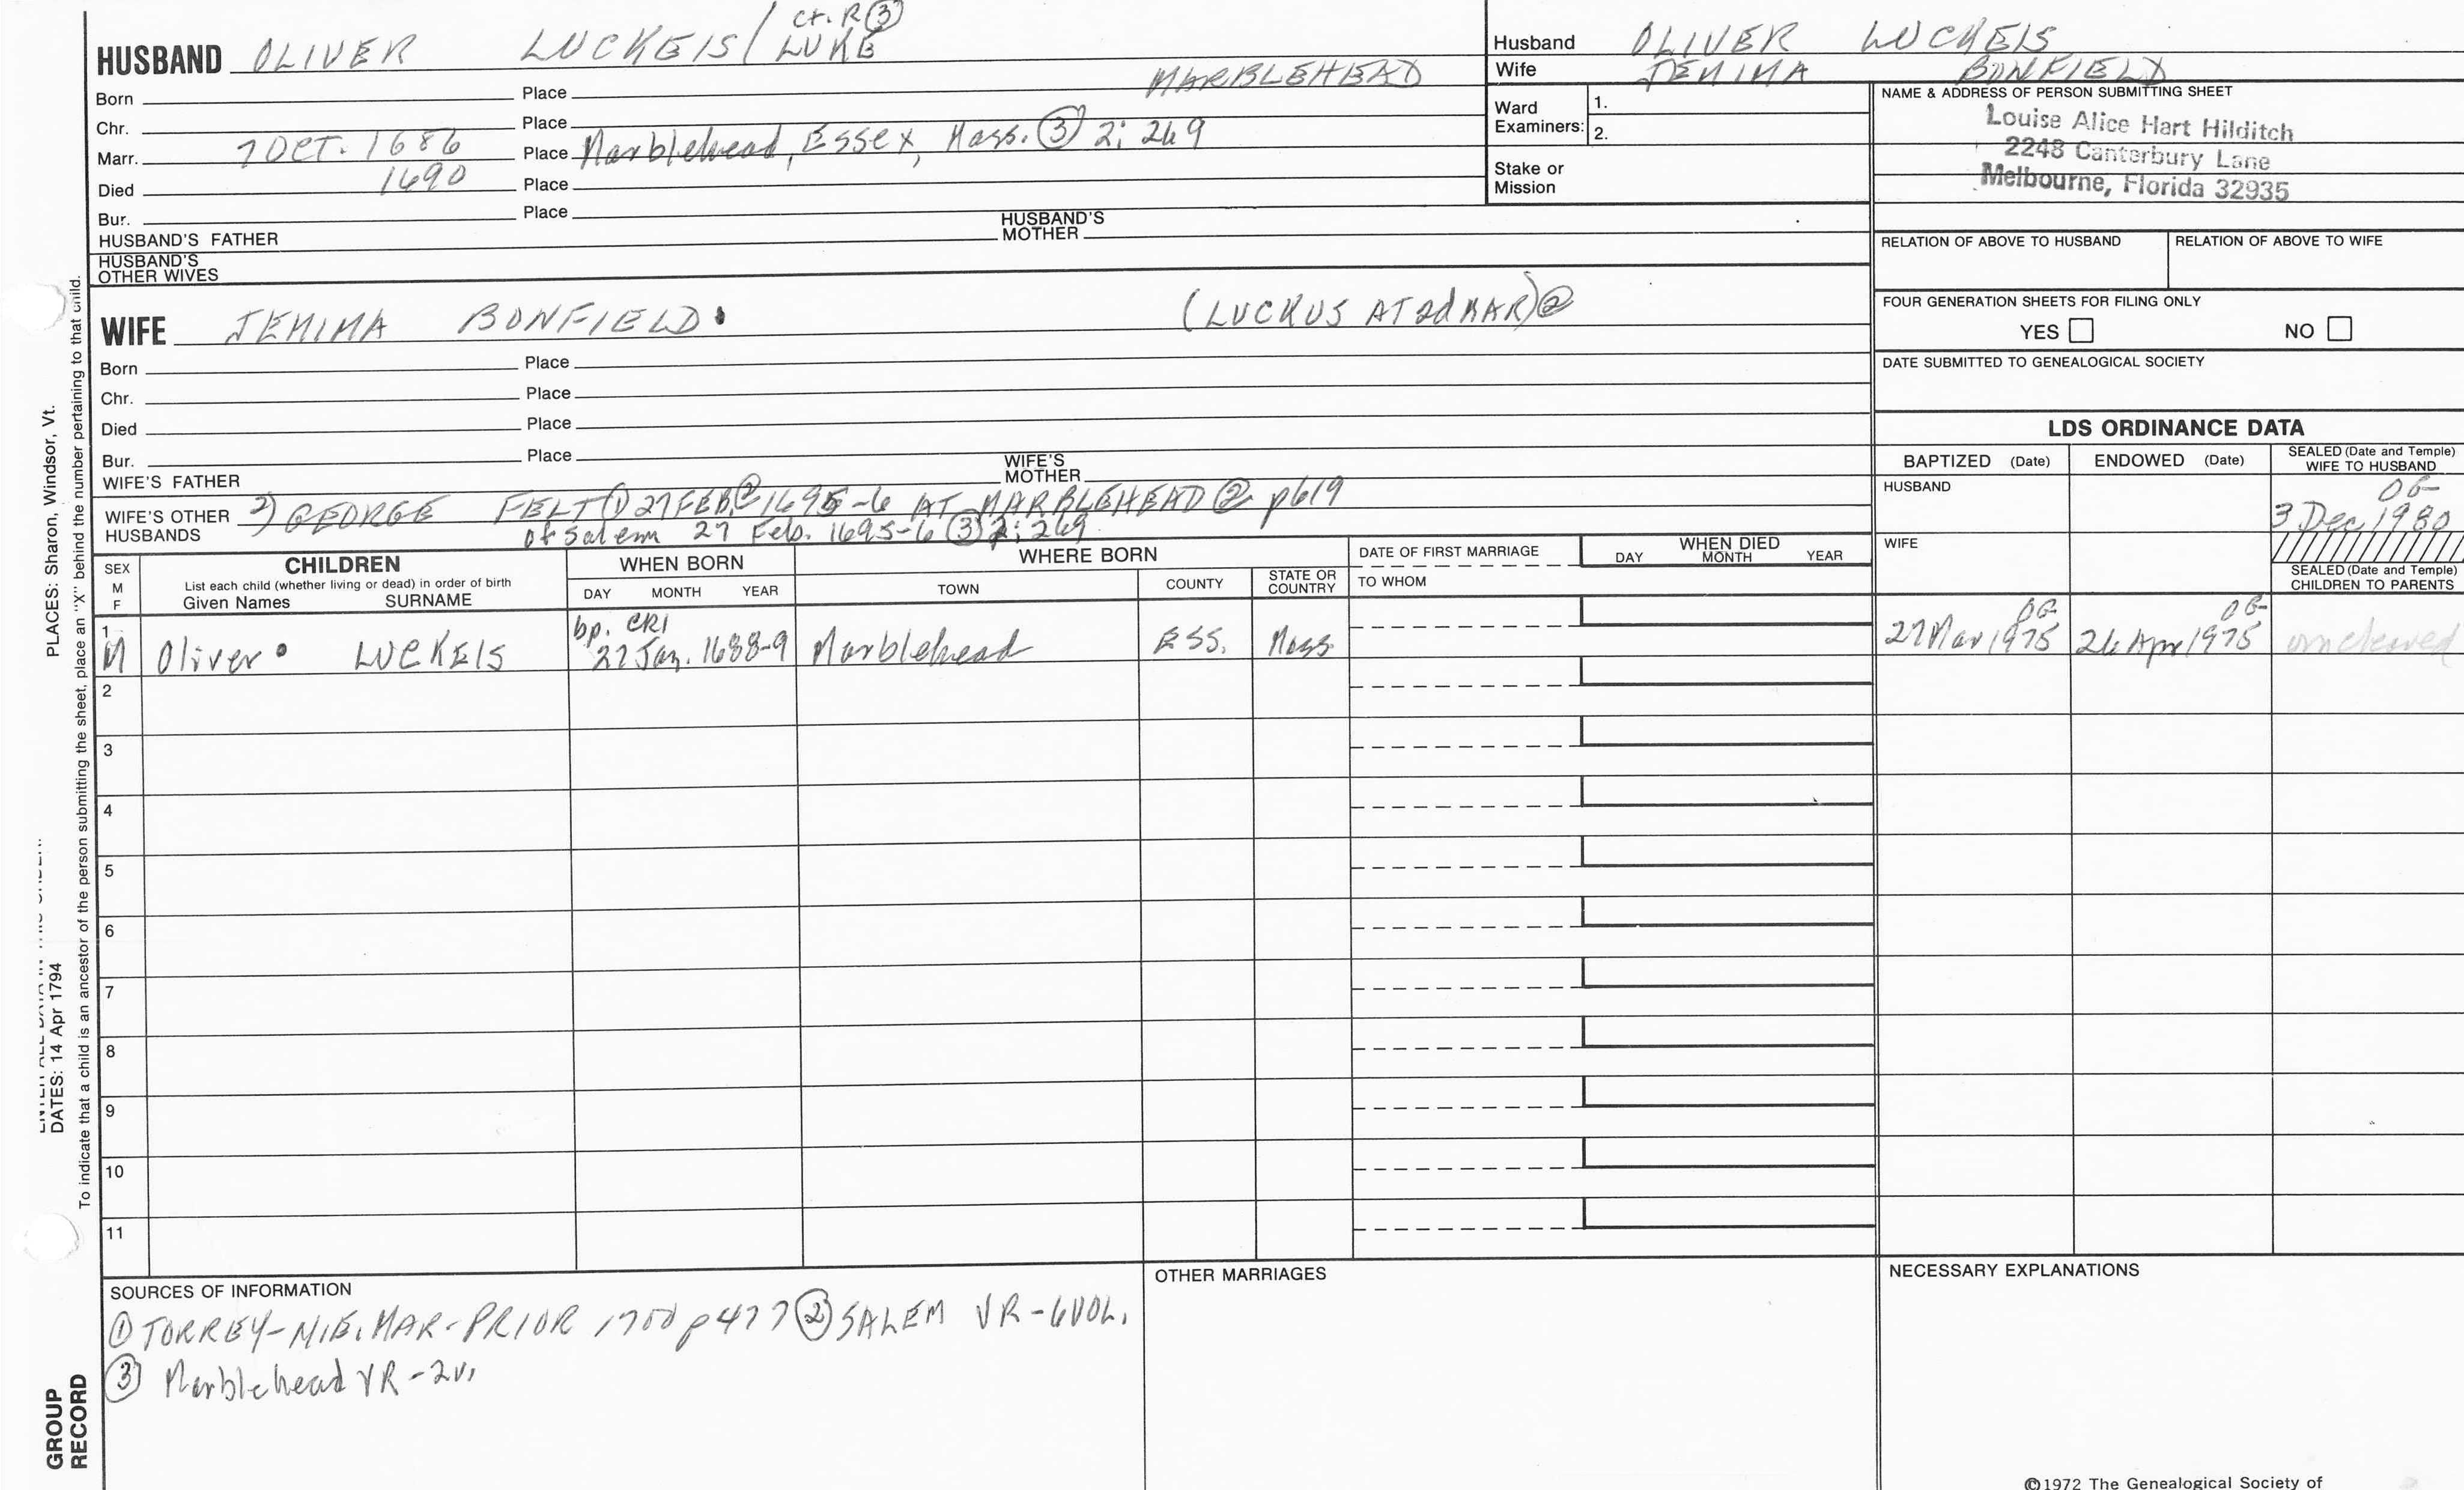 ct. R ③
HUSBAND OLIVER LUCKEIS/LUKE
MARBLEHEAD
Born Place
Chr. Place
Marr. 7 OCT. 1686 Place Marblehead, Essex, Mass. ③ 2: 269
Died 1690 Place
Bur. Place
HUSBAND'S FATHER HUSBAND'S MOTHER
HUSBAND'S OTHER WIVES
WIFE JEMIMA BONFIELD (LUCKUS AT 2d MAR) ②
Born Place
Chr. Place
Died Place
Bur. Place
WIFE'S FATHER WIFE'S MOTHER
WIFE'S OTHER HUSBANDS 2) GEORGE FELT ① 27 FEB ② 1695-6 AT MARBLEHEAD ② p619
of Salem 27 Feb. 1695-6 ③ 2: 269
Husband OLIVER LUCKEIS
Wife JEMIMA BONFIELD
Ward Examiners: 1.
2.
Stake or Mission
NAME & ADDRESS OF PERSON SUBMITTING SHEET
Louise Alice Hart Hilditch
2248 Canterbury Lane
Melbourne, Florida 32935
RELATION OF ABOVE TO HUSBAND RELATION OF ABOVE TO WIFE
FOUR GENERATION SHEETS FOR FILING ONLY
YES NO
DATE SUBMITTED TO GENEALOGICAL SOCIETY
LDS ORDINANCE DATA
BAPTIZED (Date) ENDOWED (Date) SEALED (Date and Temple) WIFE TO HUSBAND
HUSBAND OG
3 Dec 1980
WIFE
SEALED (Date and Temple)
CHILDREN TO PARENTS
SEX M F
CHILDREN
List each child (whether living or dead) in order of birth
Given Names SURNAME
WHEN BORN
DAY MONTH YEAR
WHERE BORN
TOWN COUNTY STATE OR COUNTRY
DATE OF FIRST MARRIAGE
TO WHOM
WHEN DIED
DAY MONTH YEAR
1 bp. CR1 OG OG
M Oliver LUCKEIS 27 Jan. 1688-9 Marblehead ESS. Mass. 27 Mar 1975 26 Apr 1975 uncleared
2
3
4
5
6
7
8
9
10
11
SOURCES OF INFORMATION
① TORREY-N.E. MAR-PRIOR 1700 p477 ② SALEM VR-6VOL.
③ Marblehead VR-2v.
OTHER MARRIAGES
NECESSARY EXPLANATIONS
©1972 The Genealogical Society of
PLACES: Sharon, Windsor, Vt.
DATES: 14 Apr 1794
To indicate that a child is an ancestor of the person submitting the sheet, place an "X" behind the number pertaining to that child.
GROUP
RECORD